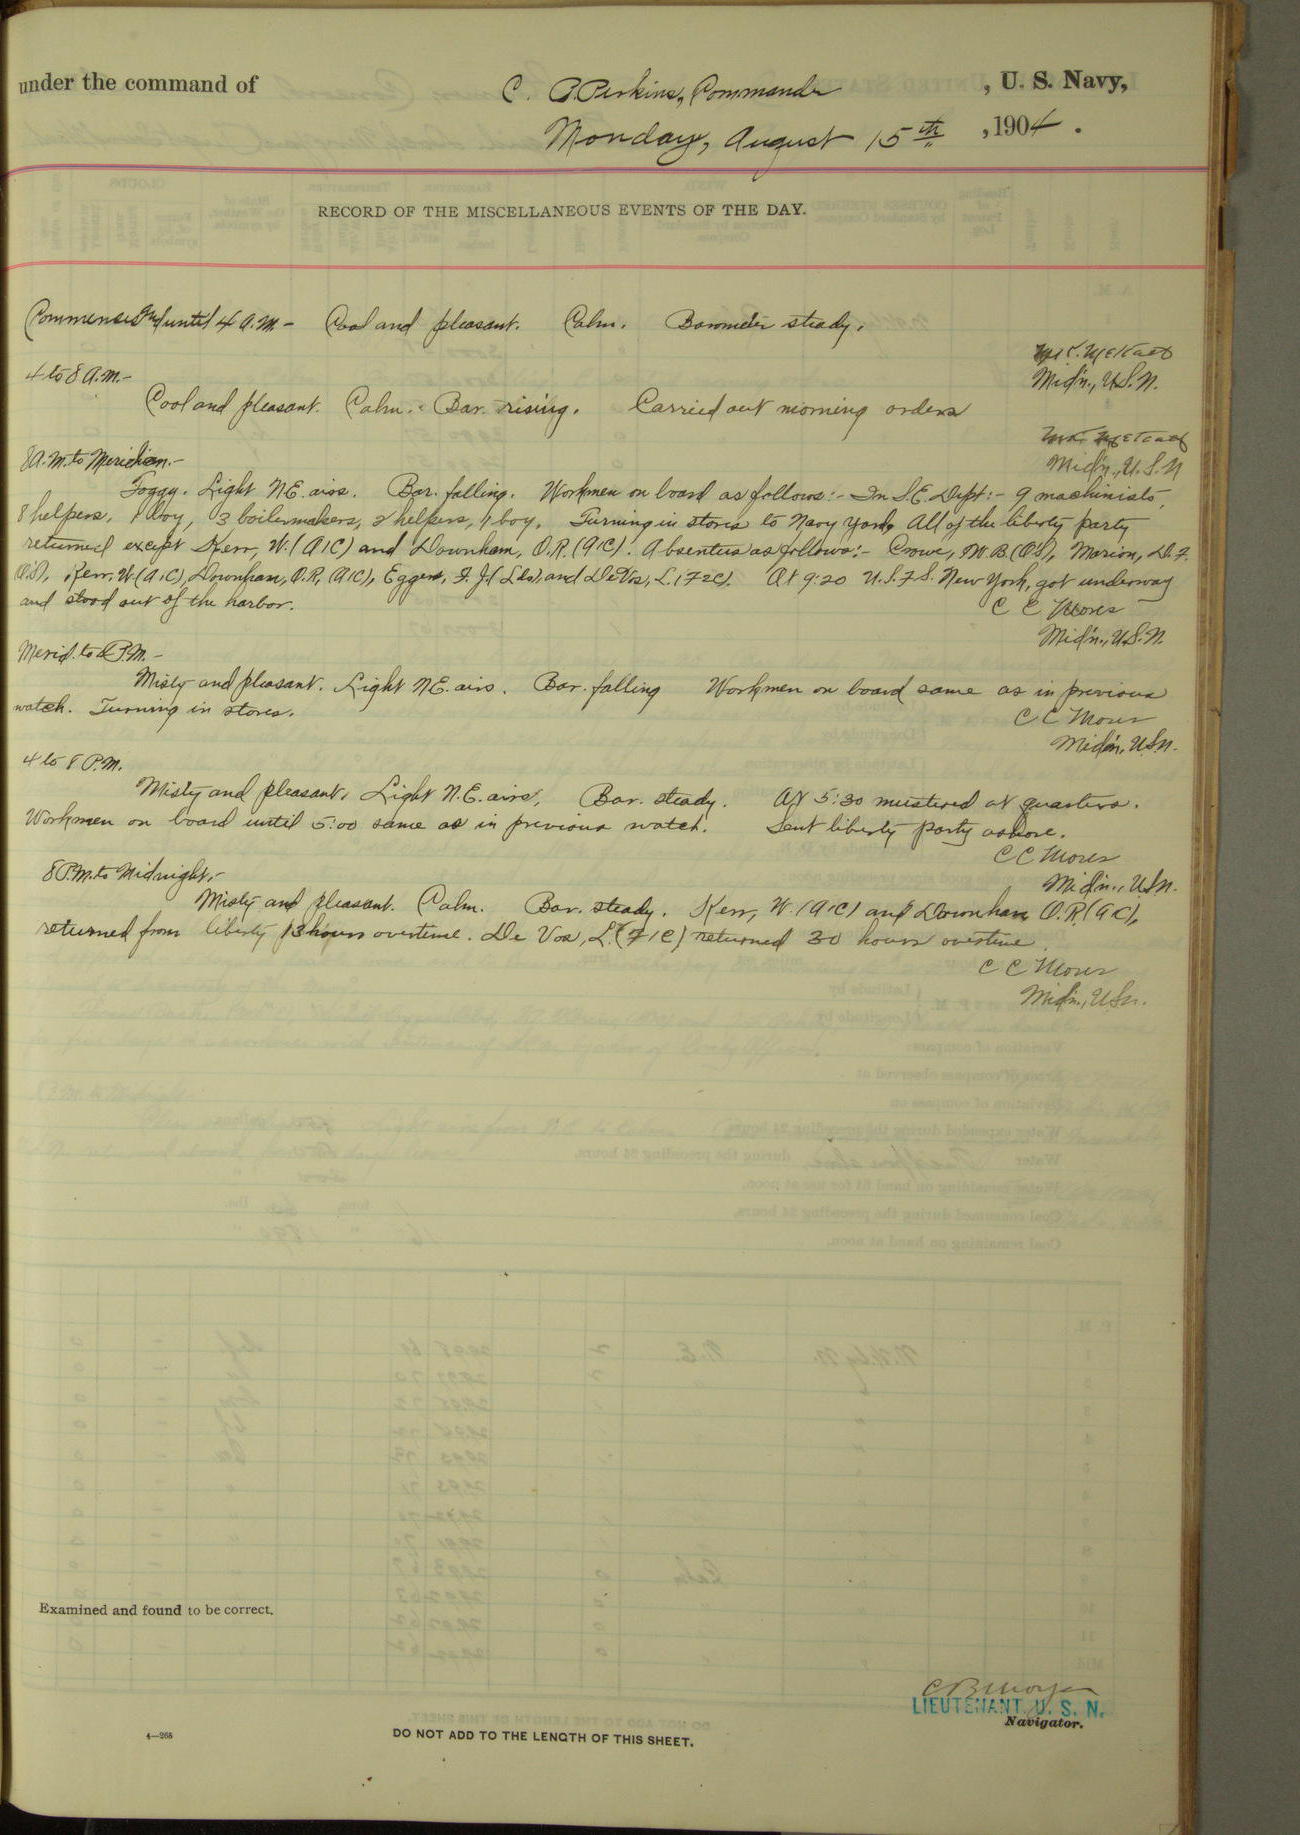 under the command of C. P. Perkins, Commander , U. S. Navy,
Monday, August 15th , 1904.
RECORD OF THE MISCELLANEOUS EVENTS OF THE DAY.
Commences and until 4 A.M. - Cool and pleasant. Calm. Barometer steady.
Metcalf
Mid'n., U.S.N.
4 to 8 A.M. -
Cool and pleasant. Calm. Bar. rising. Carried out morning orders
Metcalf
Mid'n., U.S.N
8 A.M. to Meridian. -
Foggy. Light N.E. airs. Bar. falling. Workmen on board as follows:- In S.E. Dept:- 9 machinists,
8 helpers, 1 boy, 3 boilermakers, 2 helpers, 1 boy. Turning in stores to Navy Yard, All of the liberty party
returned except Kerr, W. (A1C) and Downham, O.R. (A1C). Absentees as follows:- Crowe, M.B (OS), Marion, D.F.
(O.S), Kerr, W (A1C), Downham, O.R. (A1C), Eggers, F. J. (Lds) and De Vos, L. (F2C). At 9:20 U.S.F.S. New York, got underway
and stood out of the harbor.
C C Moses
Mid'n., U.S.N.
Merid. to 4 P.M. -
Misty and pleasant. Light N.E. airs. Bar. falling Workmen on board same as in previous
watch. Turning in stores.
C C Moses
Mid'n, U.S.N.
4 to 8 P.M.
Misty and pleasant. Light N.E. airs. Bar. steady. At 5:30 mustered at quarters.
Workmen on board until 5:00 same as in previous watch. Sent liberty party ashore.
C C Moses
Mid'n., U.S.N.
8 P.M. to Midnight. -
Misty and pleasant. Calm. Bar. steady. Kerr, W. (A1C) and Downham O.R. (A1C),
returned from liberty 13 hours overtime. De Vos, L. (F1C) returned 30 hours overtime.
C C Moses
Mid'n., U.S.N.
Examined and found to be correct.
LIEUTENANT, U. S. N.
Navigator.
4—265
DO NOT ADD TO THE LENGTH OF THIS SHEET.